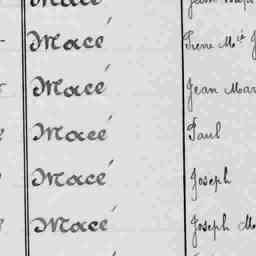 Macé
Macé Irène Mie J
Macé Jean Mar
Macé Paul
Macé Joseph
Macé Joseph Ma